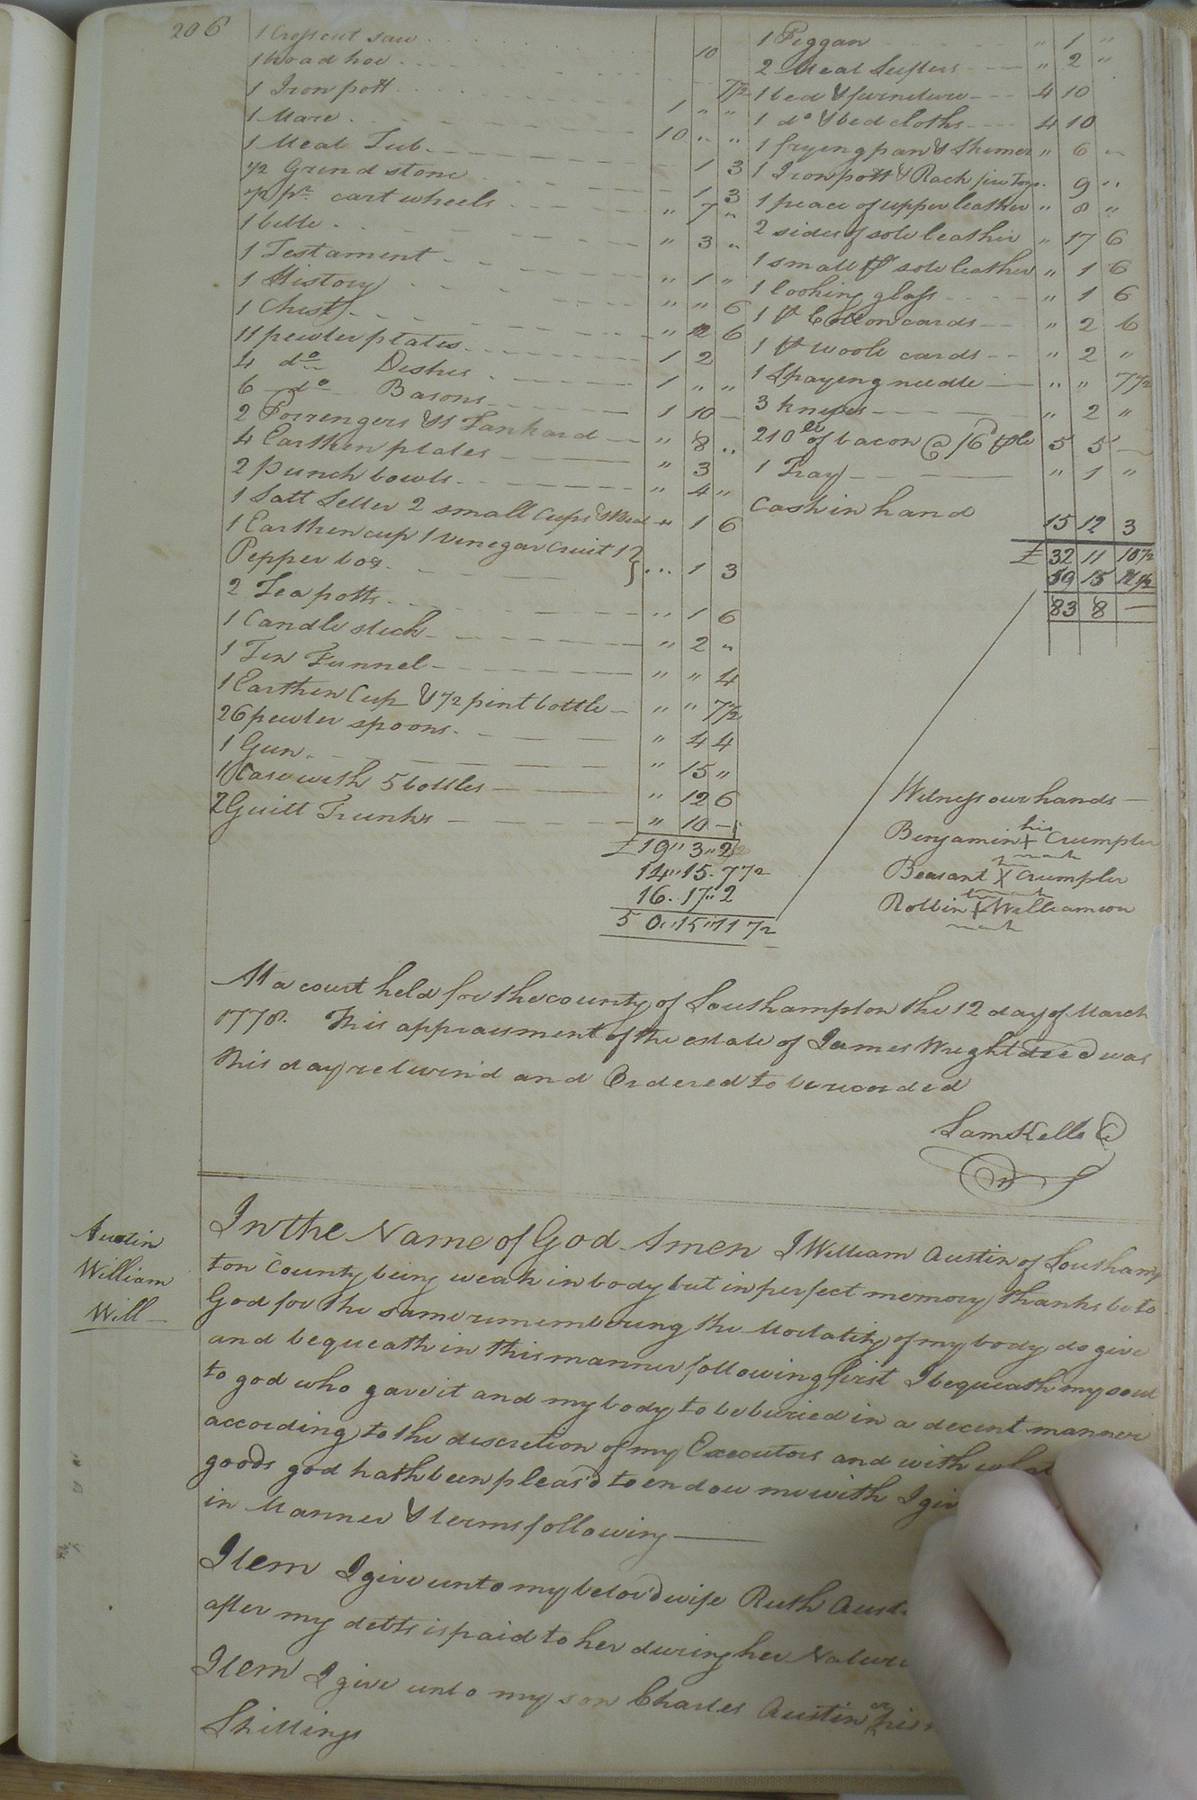 206
1 Crosscut saw
1 broad hoe 10
1 Iron pott 7½
1 Mare 1 " "
1 Meal Tub 10 " "
½ Grind stone 1 3
½ pr cart wheels 1 3
1 bible " 7 "
1 Testament " 3 "
1 History " 1 "
1 Chest " " 6
11 pewter plates " 12 6
4 do Dishes 1 2
6 do Basons 1 " "
2 Porrengers & 1 Tankard 1 10
4 Earthen plates " 8 "
2 punch bowls " 3
1 Salt Seller 2 small cups " 4 "
1 Earthen cup 1 vinegar cruit 1 " 1 6
Pepper box 1 3
2 Tea potts " 1 6
1 Candle stick " 2 "
1 Tin Funnel " " 4
1 Earthen Cup & ½ pint bottle " " 7½
26 pewter spoons " 4 4
1 Gun " 15 "
1 Case with 5 bottles " 12 6
2 Guilt Trunks " 10
£19 " 3 " 2
14 " 15 . 7½
16 . 17 " 2
50 " 15 " 11½
1 Piggan " 1 "
2 Meal Sifters " 2 "
1 bed & furneture 4 10
1 do & bed cloths 4 10
1 frying pan & Skimer " 6
1 Iron pott & Rack 9 "
1 peace of upper leather " 8 "
2 sides of sole leather " 17 6
1 small ps sole leather " 1 6
1 looking glass " 1 6
1 pr Cotton cards " 2 6
1 pr Woole cards " 2 "
1 Spayeng needle " " 7½
3 knifes " 2 "
210 lb of bacon @ /6 pr lb 5 5
1 Tray " 1 "
Cash in hand 15 12 3
£ 32 11 10½
83 8
Witness our hands
Benjamin his + mark Crumpler
Beasant X Crumpler
Robbin + Williamson
mark
At a court held for the county of Southampton the 12 day of March
1778. This appraisment of the estate of James Wright deced was
this day returnd and Ordered to be recorded
Sam Kello C
Austin
William
Will
In the Name of God Amen I William Austin of Southamp
ton County being weak in body but in perfect memory thanks be to
God for the same remembering the Mortality of my body do give
and bequeath in this manner following first I bequeath my soul
to god who gave it and my body to be buried in a decent manner
according to the discretion of my Executors and with what
goods god hath been pleas'd to endow me with I giv
in Manner & terms following
Item I give unto my belov'd wife Ruth Aust
after my debts is paid to her during her Natur
Item I give unto my son Charles Austin or his
Shillings